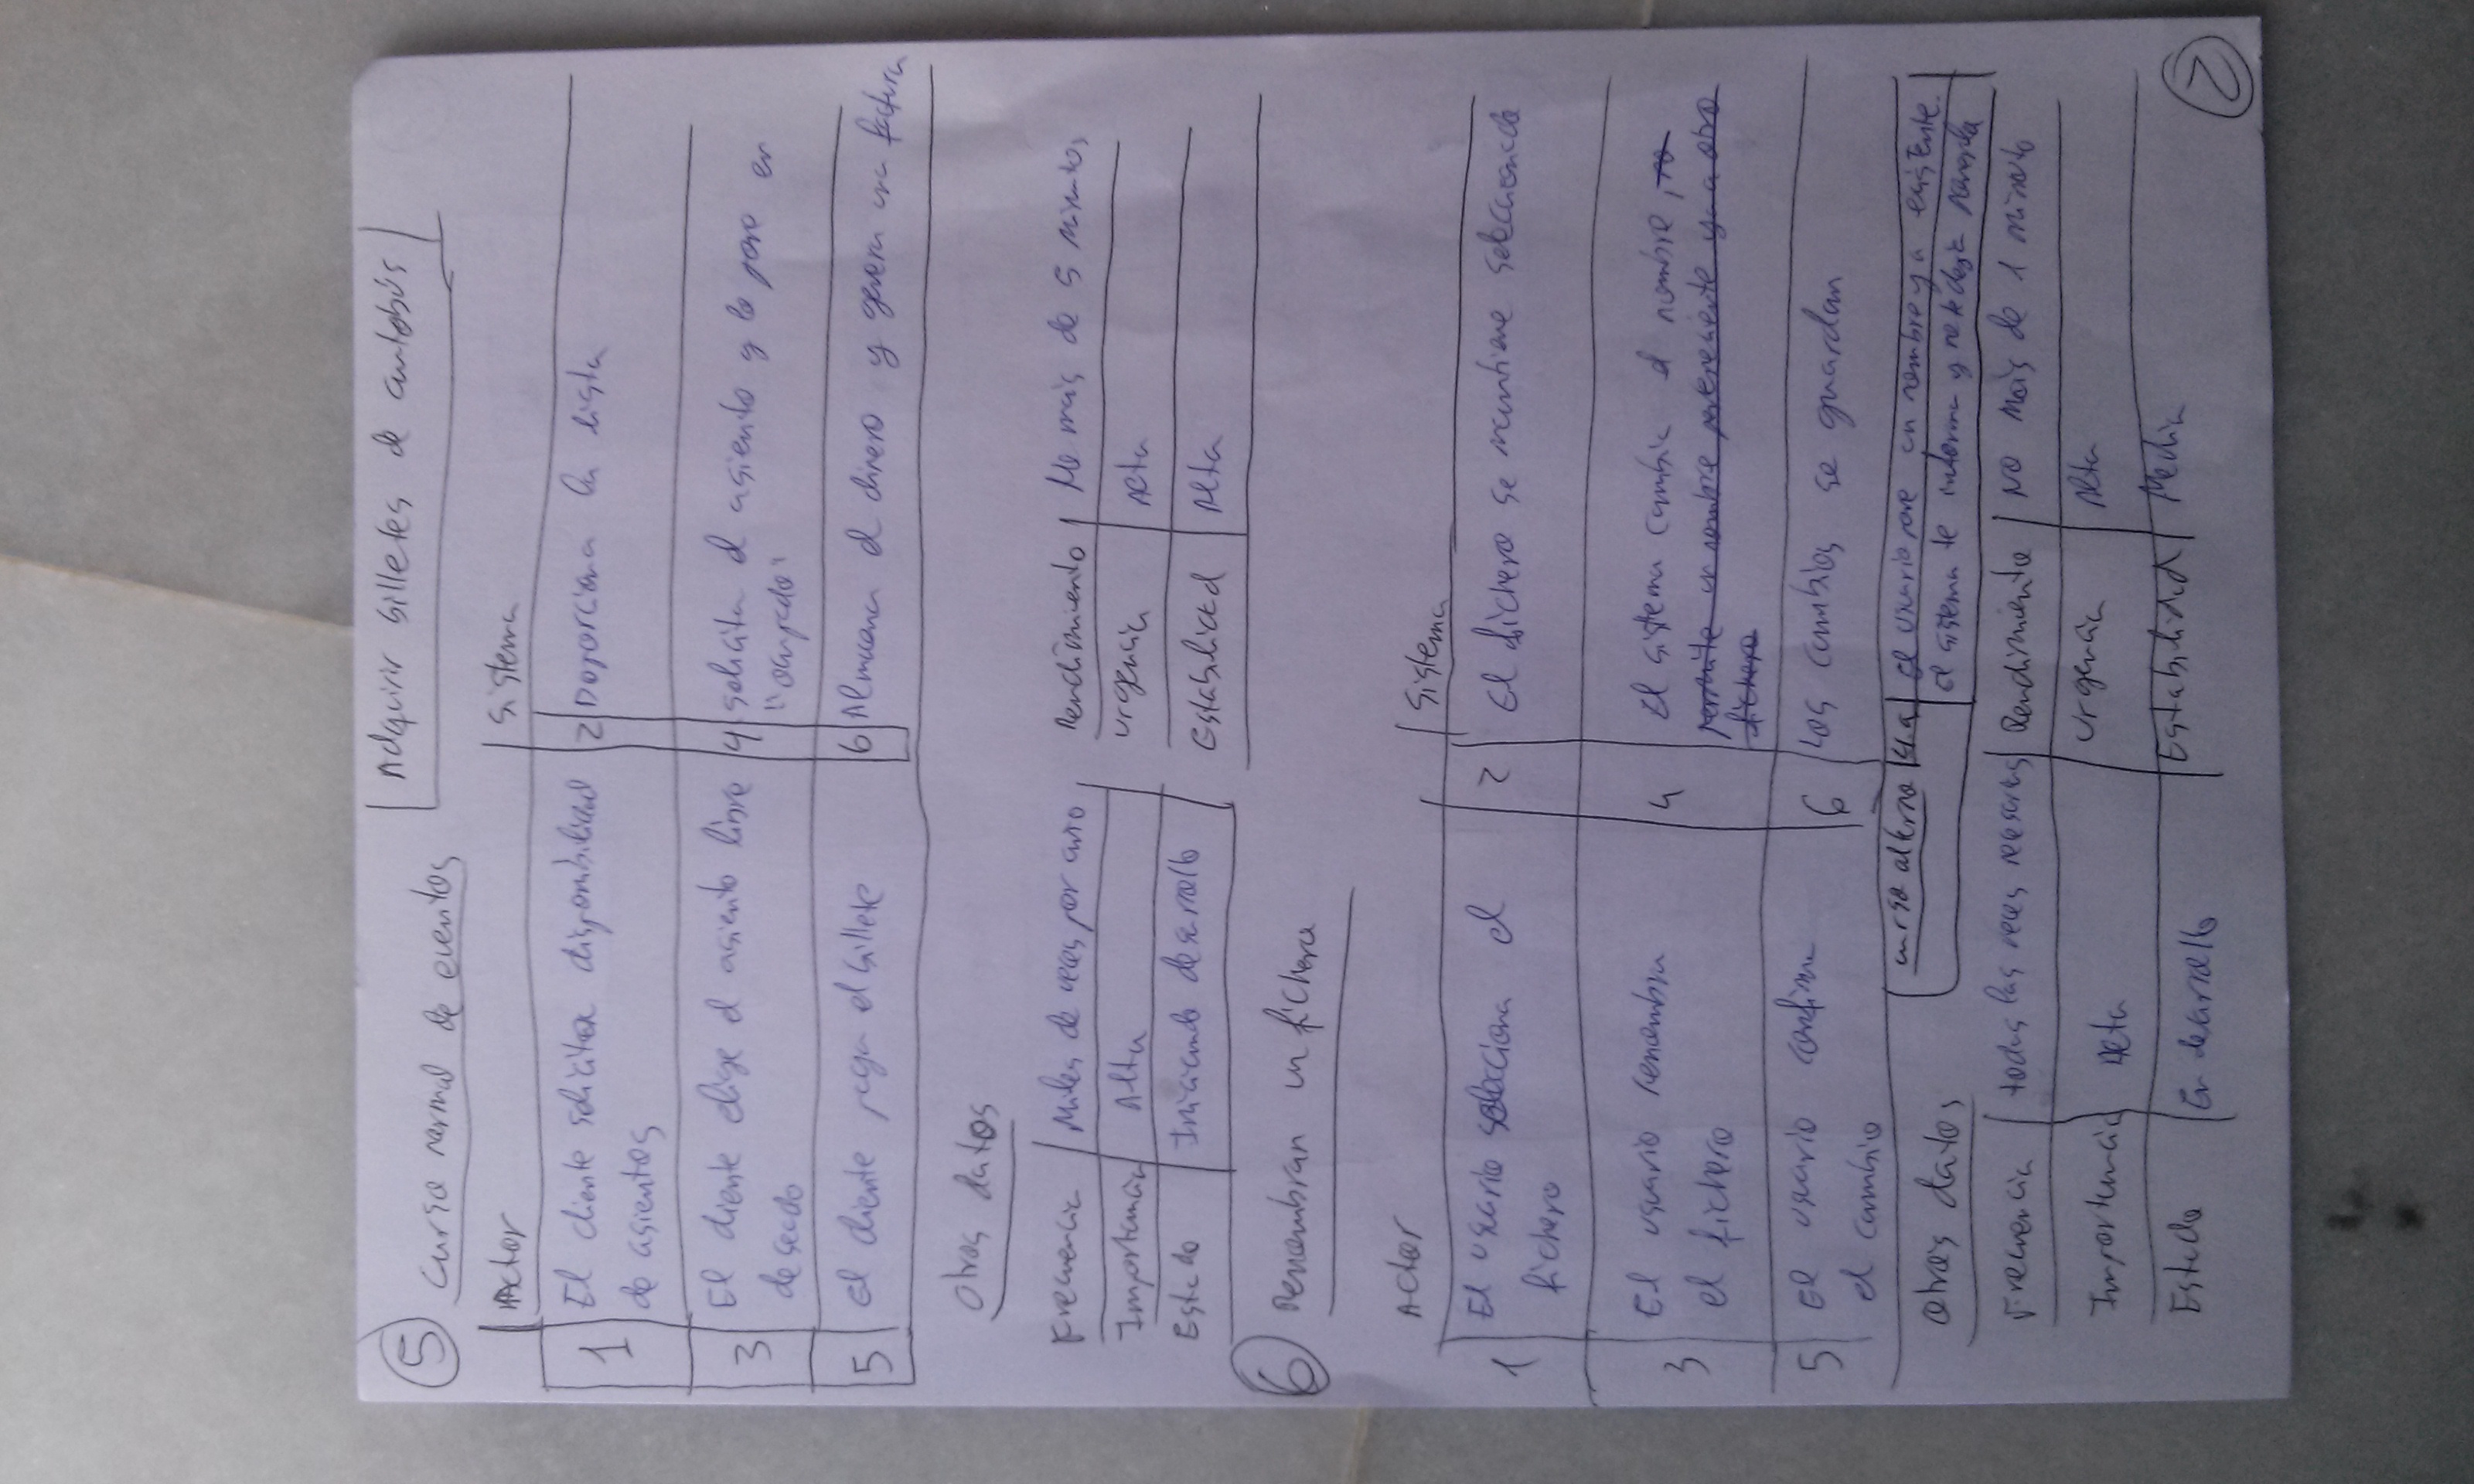 5
Adquirir billetes de autobús
Curso normal de eventos
Actor
Sistema
1
El cliente solicita disponibilidad
de asientos
2
Proporciona la lista
3
El cliente elige el asiento libre
deseado
4
solicita el asiento y lo pone en
"ocupado"
5
El cliente paga el billete
6
Almacena el dinero y genera una factura
Otros datos
Frecuencia
Miles de veces por año
Rendimiento
No más de 5 minutos
Importancia
Alta
Urgencia
Alta
Estado
Iniciando desarrollo
Estabilidad
Alta
6
Renombrar un fichero
Actor
Sistema
1
El usuario selecciona el
fichero
2
El fichero se mantiene seleccionado
3
El usuario renombra
el fichero
4
El sistema cambia el nombre, no
permite un nombre perteneciente ya a otro
fichero
5
El usuario confirma
el cambio
6
Los cambios se guardan
Curso alterno
4.a
El usuario pone un nombre ya existente.
El sistema te informa y no te deja
Otros datos
Frecuencia
todas las veces necesarias
Rendimiento
No más de 1 minuto
Importancia
Alta
Urgencia
Alta
Estado
En desarrollo
Estabilidad
Media
2